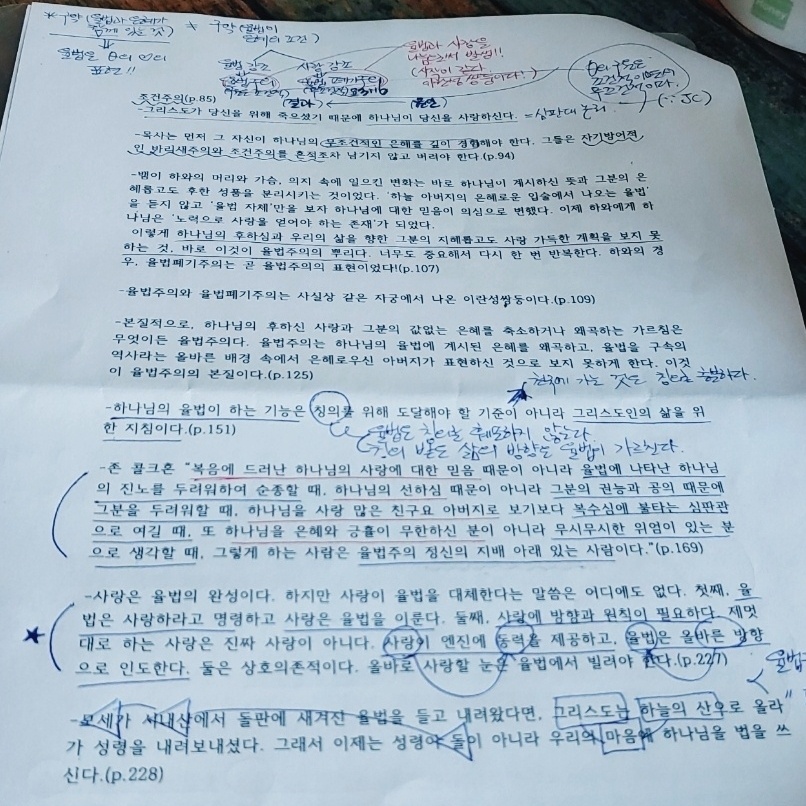 * 구약 (율법과 은혜가 함께 있는 것)
* 구약 (율법이
율법은
율법 강조
사랑 강조
율법과 사랑을
조건주의(p.85)
-그리스도가 당신을 위해 죽으셨기 때문에 하나님이 당신을 사랑하신다.
(∵ JC)
-목사는 먼저 그 자신이 하나님의 무조건적인 은혜를 깊이 경험해야 한다. 그들은 자기방어적
인 바리새주의와 조건주의를 흔적조차 남기지 않고 버려야 한다.(p.94)
-뱀이 하와의 머리와 가슴, 의지 속에 일으킨 변화는 바로 하나님이 계시하신 뜻과 그분의 은
혜롭고도 후한 성품을 분리시키는 것이었다. '하늘 아버지의 은혜로운 입술에서 나오는 율법'
을 듣지 않고 '율법 자체'만을 보자 하나님에 대한 믿음이 의심으로 변했다. 이제 하와에게 하
나님은 '노력으로 사랑을 얻어야 하는 존재'가 되었다.
이렇게 하나님의 후하심과 우리의 삶을 향한 그분의 지혜롭고도 사랑 가득한 계획을 보지 못
하는 것, 바로 이것이 율법주의의 뿌리다. 너무도 중요해서 다시 한 번 반복한다. 하와의 경
우, 율법폐기주의는 곧 율법주의의 표현이었다!(p.107)
-율법주의와 율법폐기주의는 사실상 같은 자궁에서 나온 이란성쌍둥이다.(p.109)
-본질적으로, 하나님의 후하신 사랑과 그분의 값없는 은혜를 축소하거나 왜곡하는 가르침은
무엇이든 율법주의다. 율법주의는 하나님의 율법에 계시된 은혜를 왜곡하고, 율법을 구속의
역사라는 올바른 배경 속에서 은혜로우신 아버지가 표현하신 것으로 보지 못하게 한다. 이것
이 율법주의의 본질이다.(p.125)
-하나님의 율법이 하는 기능은 칭의를 위해 도달해야 할 기준이 아니라 그리스도인의 삶을 위
한 지침이다.(p.151)
율법도 칭의를 훼손하지 않는다.
칭의 받은 삶의 방향은 율법이 가르친다.
-존 콜크혼 "복음에 드러난 하나님의 사랑에 대한 믿음 때문이 아니라 율법에 나타난 하나님
의 진노를 두려워하여 순종할 때, 하나님의 선하심 때문이 아니라 그분의 권능과 공의 때문에
그분을 두려워할 때, 하나님을 사랑 많은 친구요 아버지로 보기보다 복수심에 불타는 심판관
으로 여길 때, 또 하나님을 은혜와 긍휼이 무한하신 분이 아니라 무시무시한 위엄이 있는 분
으로 생각할 때, 그렇게 하는 사람은 율법주의 정신의 지배 아래 있는 사람이다."(p.169)
-사랑은 율법의 완성이다. 하지만 사랑이 율법을 대체한다는 말씀은 어디에도 없다. 첫째, 율
법은 사랑하라고 명령하고 사랑은 율법을 이룬다. 둘째, 사랑에 방향과 원칙이 필요하다. 제멋
대로 하는 사랑은 진짜 사랑이 아니다. 사랑이 엔진에 동력을 제공하고, 율법은 올바른 방향
으로 인도한다. 둘은 상호의존적이다. 올바로 사랑할 눈은 율법에서 빌려야 한다.(p.227)
-모세가 시내산에서 돌판에 새겨진 율법을 들고 내려왔다면, 그리스도는 하늘의 산으로 올라
가 성령을 내려보내셨다. 그래서 이제는 성령이 돌이 아니라 우리의 마음에 하나님을 법을 쓰
신다.(p.228)